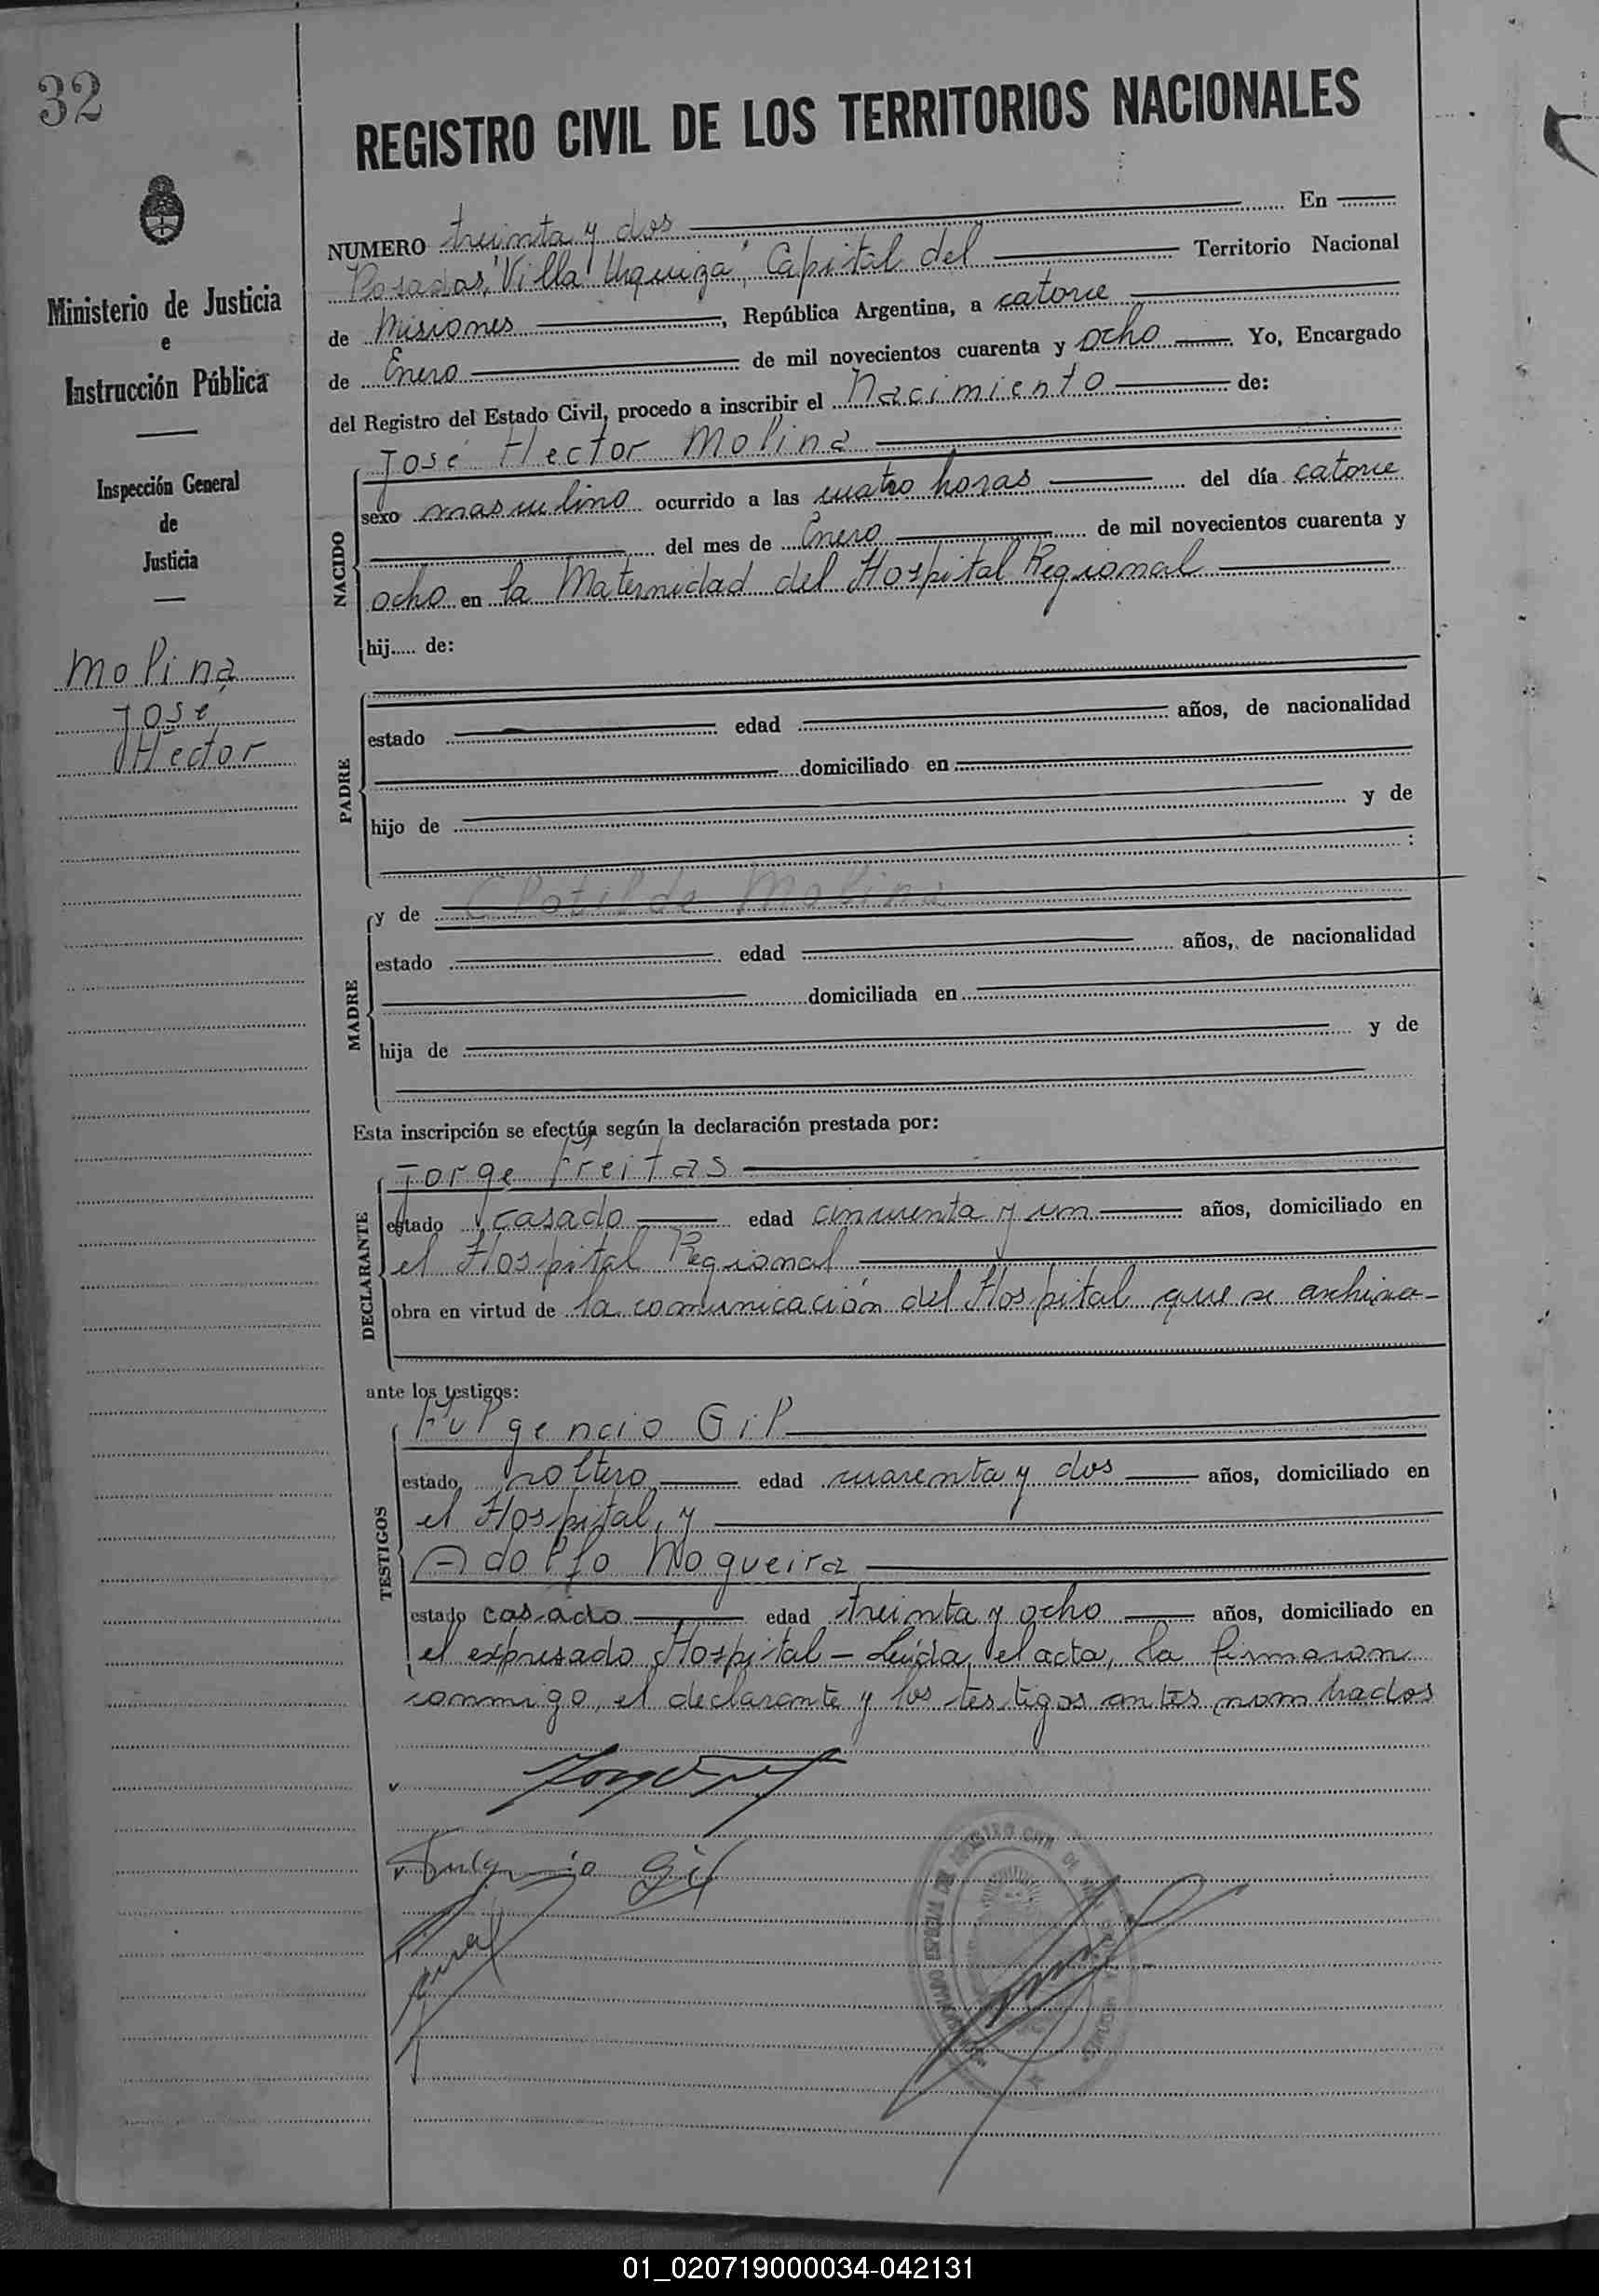 32
REGISTRO CIVIL DE LOS TERRITORIOS NACIONALES
Ministerio de Justicia
e
Instrucción Pública
Inspección General
de
Justicia
Molina
José
Hector
NUMERO treinta y dos En
Posadas, "Villa Urquiza", Capital del Territorio Nacional
de Misiones, República Argentina, a catorce
de Enero de mil novecientos cuarenta y ocho. Yo, Encargado
del Registro del Estado Civil, procedo a inscribir el Nacimiento de:
NACIDO
José Hector Molina
sexo masculino ocurrido a las cuatro horas del día catorce
del mes de Enero de mil novecientos cuarenta y
ocho en la Maternidad del Hospital Regional
hij..... de:
PADRE
estado edad años, de nacionalidad
domiciliado en
hijo de y de
:
MADRE
y de Clotilde Molina
estado edad años, de nacionalidad
domiciliada en
hija de y de
Esta inscripción se efectúa según la declaración prestada por:
DECLARANTE
Jorge Freitas
estado casado edad cincuenta y un años, domiciliado en
el Hospital Regional
obra en virtud de la comunicación del Hospital que se archiva-
ante los testigos:
TESTIGOS
Fulgencio Gil
estado soltero edad cuarenta y dos años, domiciliado en
el Hospital, y
Adolfo Nogueira
estado casado edad treinta y ocho años, domiciliado en
el expresado Hospital - Leída el acta, la firmaron
conmigo, el declarante y los testigos antes nombrados
Fulgencio Gil
01_020719000034-042131